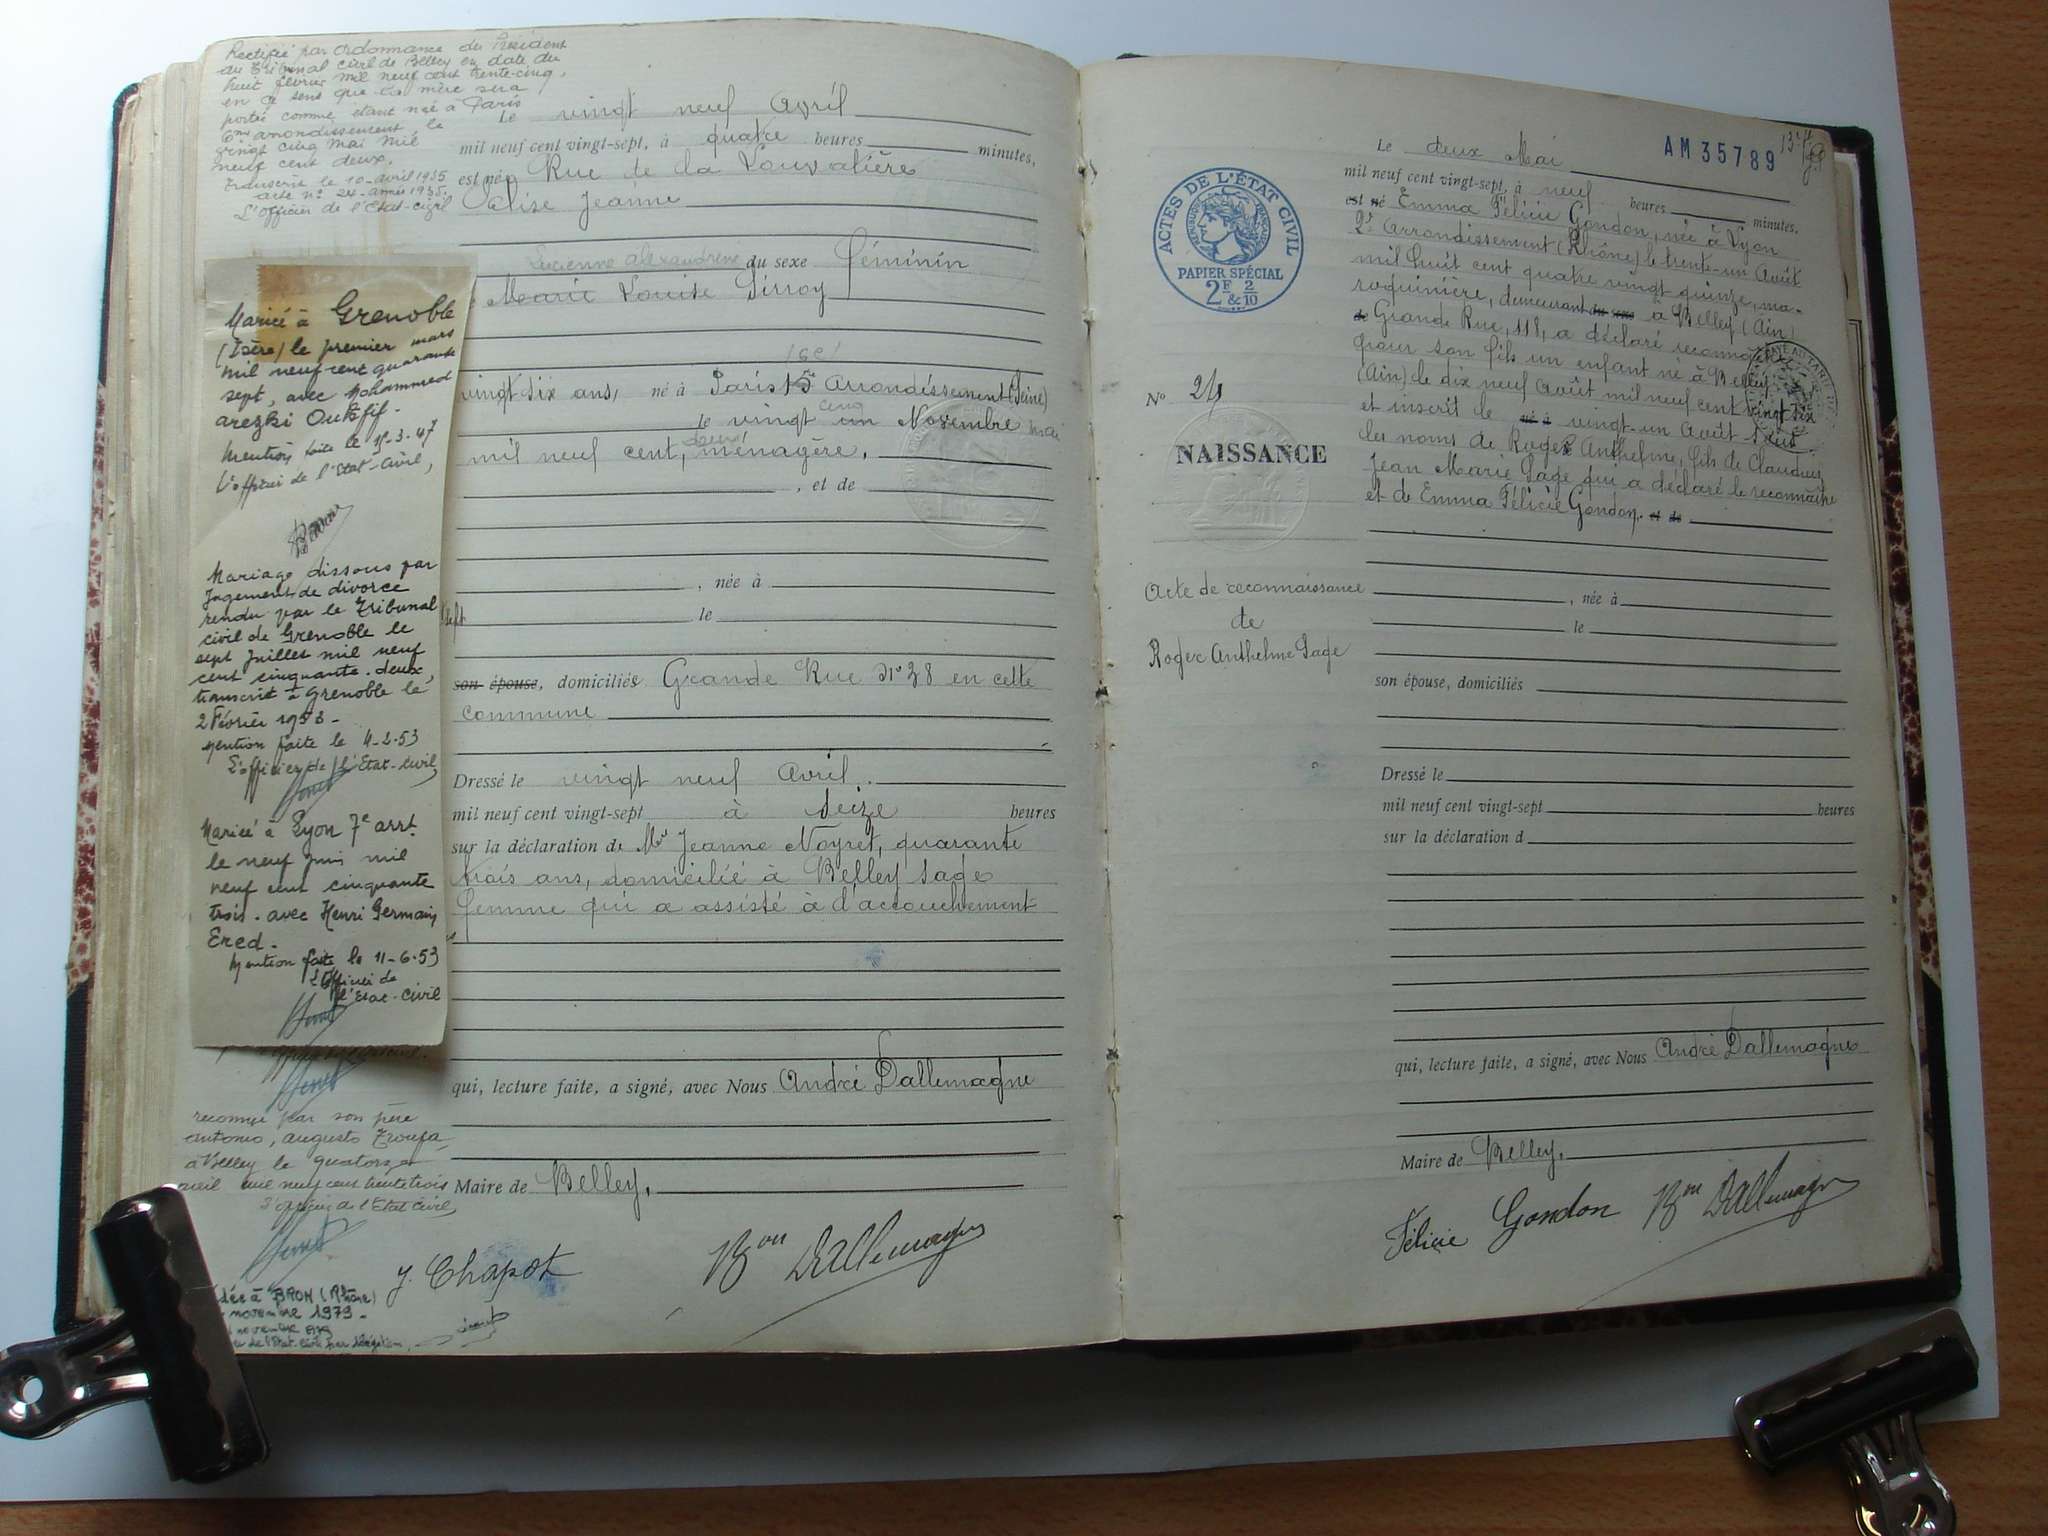 Rectifié par Ordonnance du Président
du Tribunal civil de Belley en date du
huit février mil neuf cent trente-cinq,
en ce sens que la mère sera
portée comme étant née à Paris
6me arrondissement, le
vingt cinq mai mil
neuf cent deux.
Transcrit le 10 avril 1935
acte n° 24 année 1935.
L'officier de l'Etat-civil
Marié à Grenoble
(Isère) le premier mars
mil neuf cent quarante
sept, avec Mohammed
arezki Oukfif.
Mention faite le 15-3-47
L'officier de l'Etat-Civil,
Mariage dissous par
Jugement de divorce
rendu par le Tribunal
civil de Grenoble le
sept Juillet mil neuf
cent cinquante-deux,
transcrit à Grenoble le
2 Février 1953 -
Mention faite le 4-2-53
L'officier de l'Etat-civil,
Marié à Lyon 7e arrt.
le neuf juin mil
neuf cent cinquante
trois - avec Henri Germain
Ered -
Mention faite le 11-6-53
L'officier de
l'Etat-civil
reconnue par son père
antonio, augusto
à Belley le quatorze
avril mil neuf cent trente trois
L'officier de l'Etat Civil,
à BRON (Rhône)
novembre 1979 -
novembre
de l'Etat-Civil par délégation,
Le vingt neuf Avril
mil neuf cent vingt-sept, à quatre heures minutes,
est née Rue de la Louvatière
Elise Jeanne
Lucienne Alexandrine du sexe féminin
Marie Louise Sirroy
vingt six ans, né à Paris 15e Arrondissement (Seine)
le vingt cinq un Novembre mai
mil neuf cent, deux ménagère,
, et de
, née à
le
son épouse, domiciliés Grande Rue N° 38 en cette
commune
Dressé le vingt neuf Avril.
mil neuf cent vingt-sept à seize heures
sur la déclaration de Me Jeanne Noyret, quarante
trois ans, domiciliée à Belley sage
femme qui a assisté à l'accouchement
qui, lecture faite, a signé, avec Nous André Dallemagne
Maire de Belley.
J. Chapot Bon Dallemagne
AM 35789
ACTES DE L'ÉTAT CIVIL
RÉPUBLIQUE FRANÇAISE
PAPIER SPÉCIAL
2F & 2/10
N° 24
NAISSANCE
Acte de reconnaissance
de
Roger Anthelme Sage
Le deux Mai
mil neuf cent vingt-sept, à neuf heures minutes,
est né Emma Félicie Gondon, née à Lyon
2e Arrondissement (Rhône) le trente-un Août
mil huit cent quatre vingt quinze, ma-
roquinière, demeurant du sexe à Belley (Ain)
de Grande Rue, 118, a déclaré reconnaître
pour son fils un enfant né à Belley
(Ain) le dix neuf Août mil neuf cent vingt six
et inscrit le né à vingt-un Août sous
les noms de Roger Anthelme, fils de Claudius
Jean Marie Sage qui a déclaré le reconnaître
et de Emma Félicie Gondon. et de
, née à
le
son épouse, domiciliés
Dressé le
mil neuf cent vingt-sept heures
sur la déclaration d
qui, lecture faite, a signé, avec Nous André Dallemagne
Maire de Belley.
Félicie Gondon Bon Dallemagne